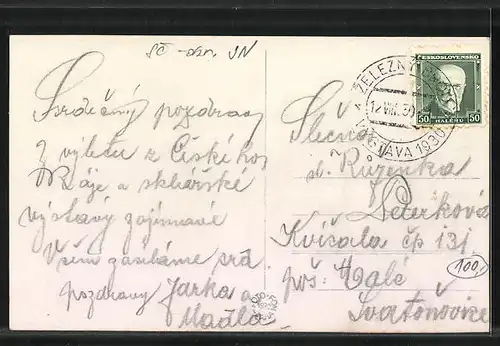 SČ - osn. JN
Srdečný pozdrav
z výletu z Českého
Ráje a sklářské
výstavy zajímavé
Všem zasíláme srd.
pozdravy Jarka a
Madla
ČESKOSLOVENSKO
50 HALÉŘŮ 50
ŽELEZN
VÝSTAVA 1930
Slečna
sl. Růženka
Peterková
Kvíčala čp 131
pos: Malé
Svatoňovice
100,-